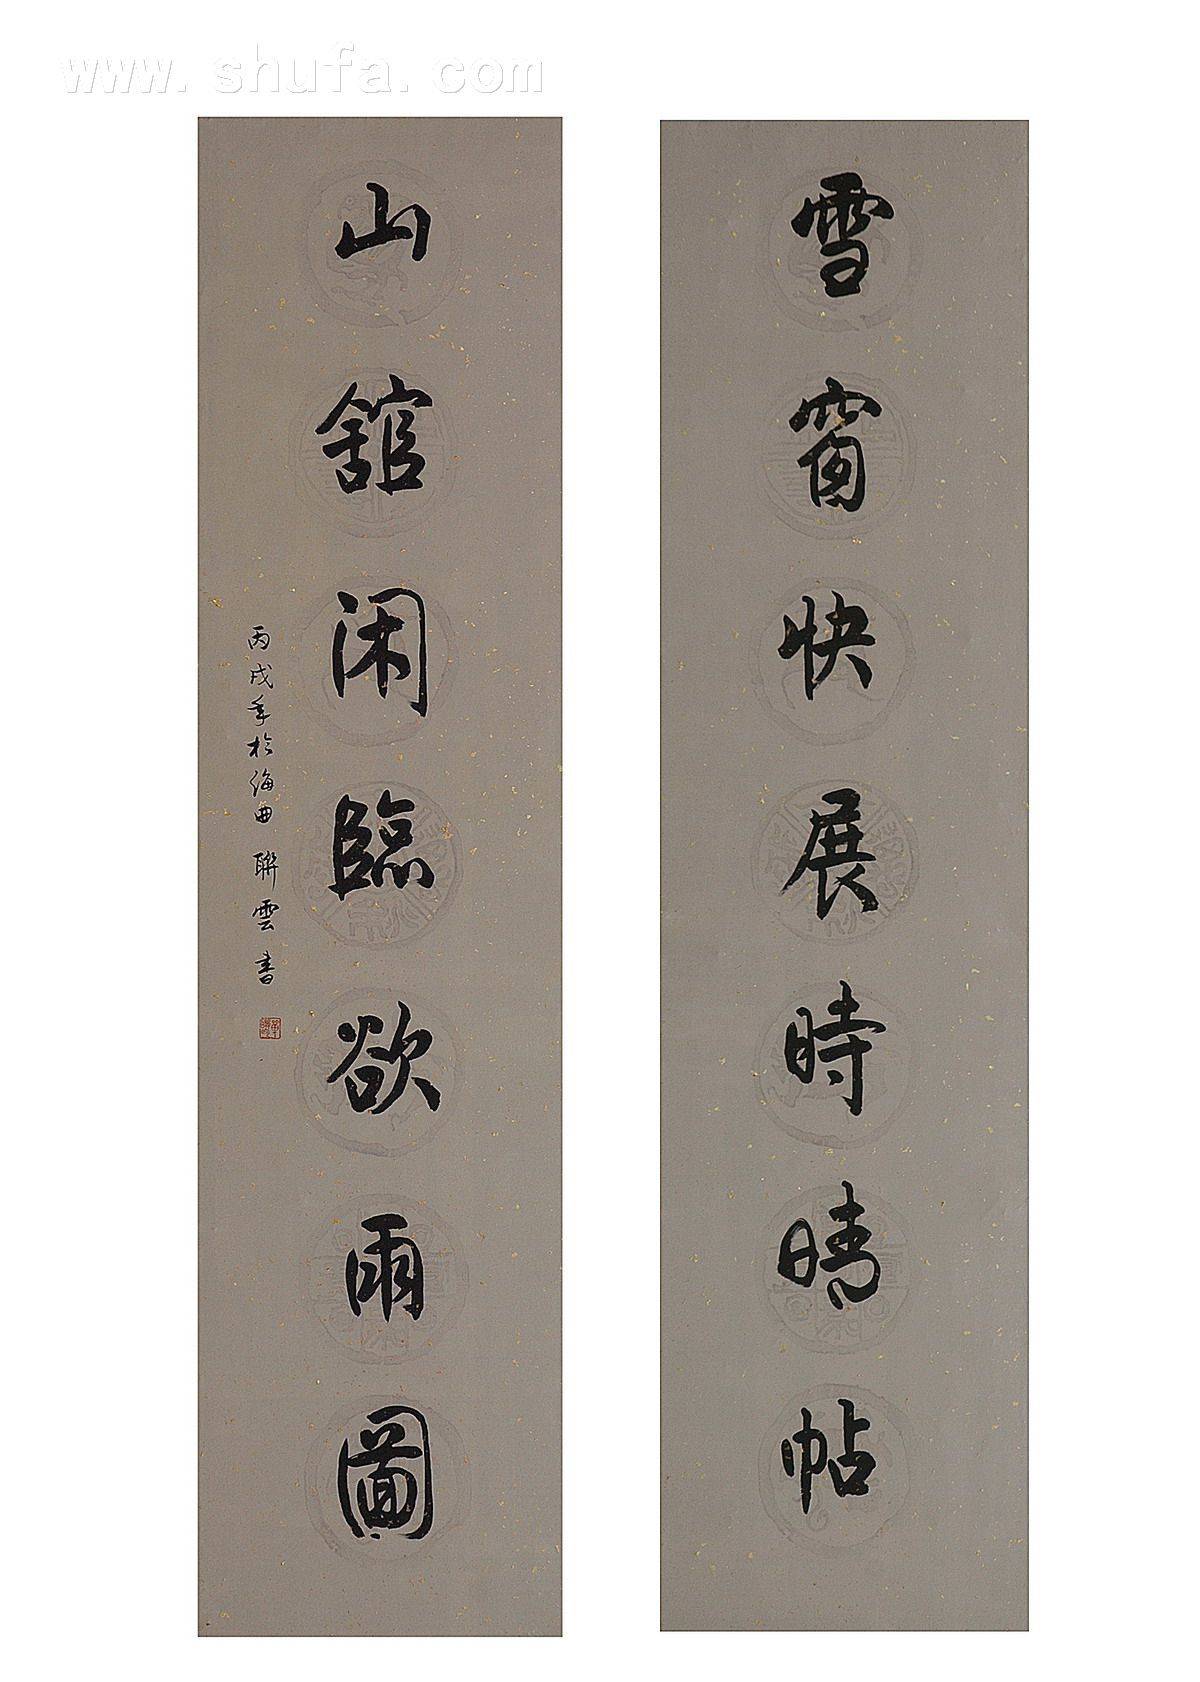 www.shufa.com
雪窗快展時晴帖
山舘闲臨欲雨圖
丙戌年於海曲 聯雲書